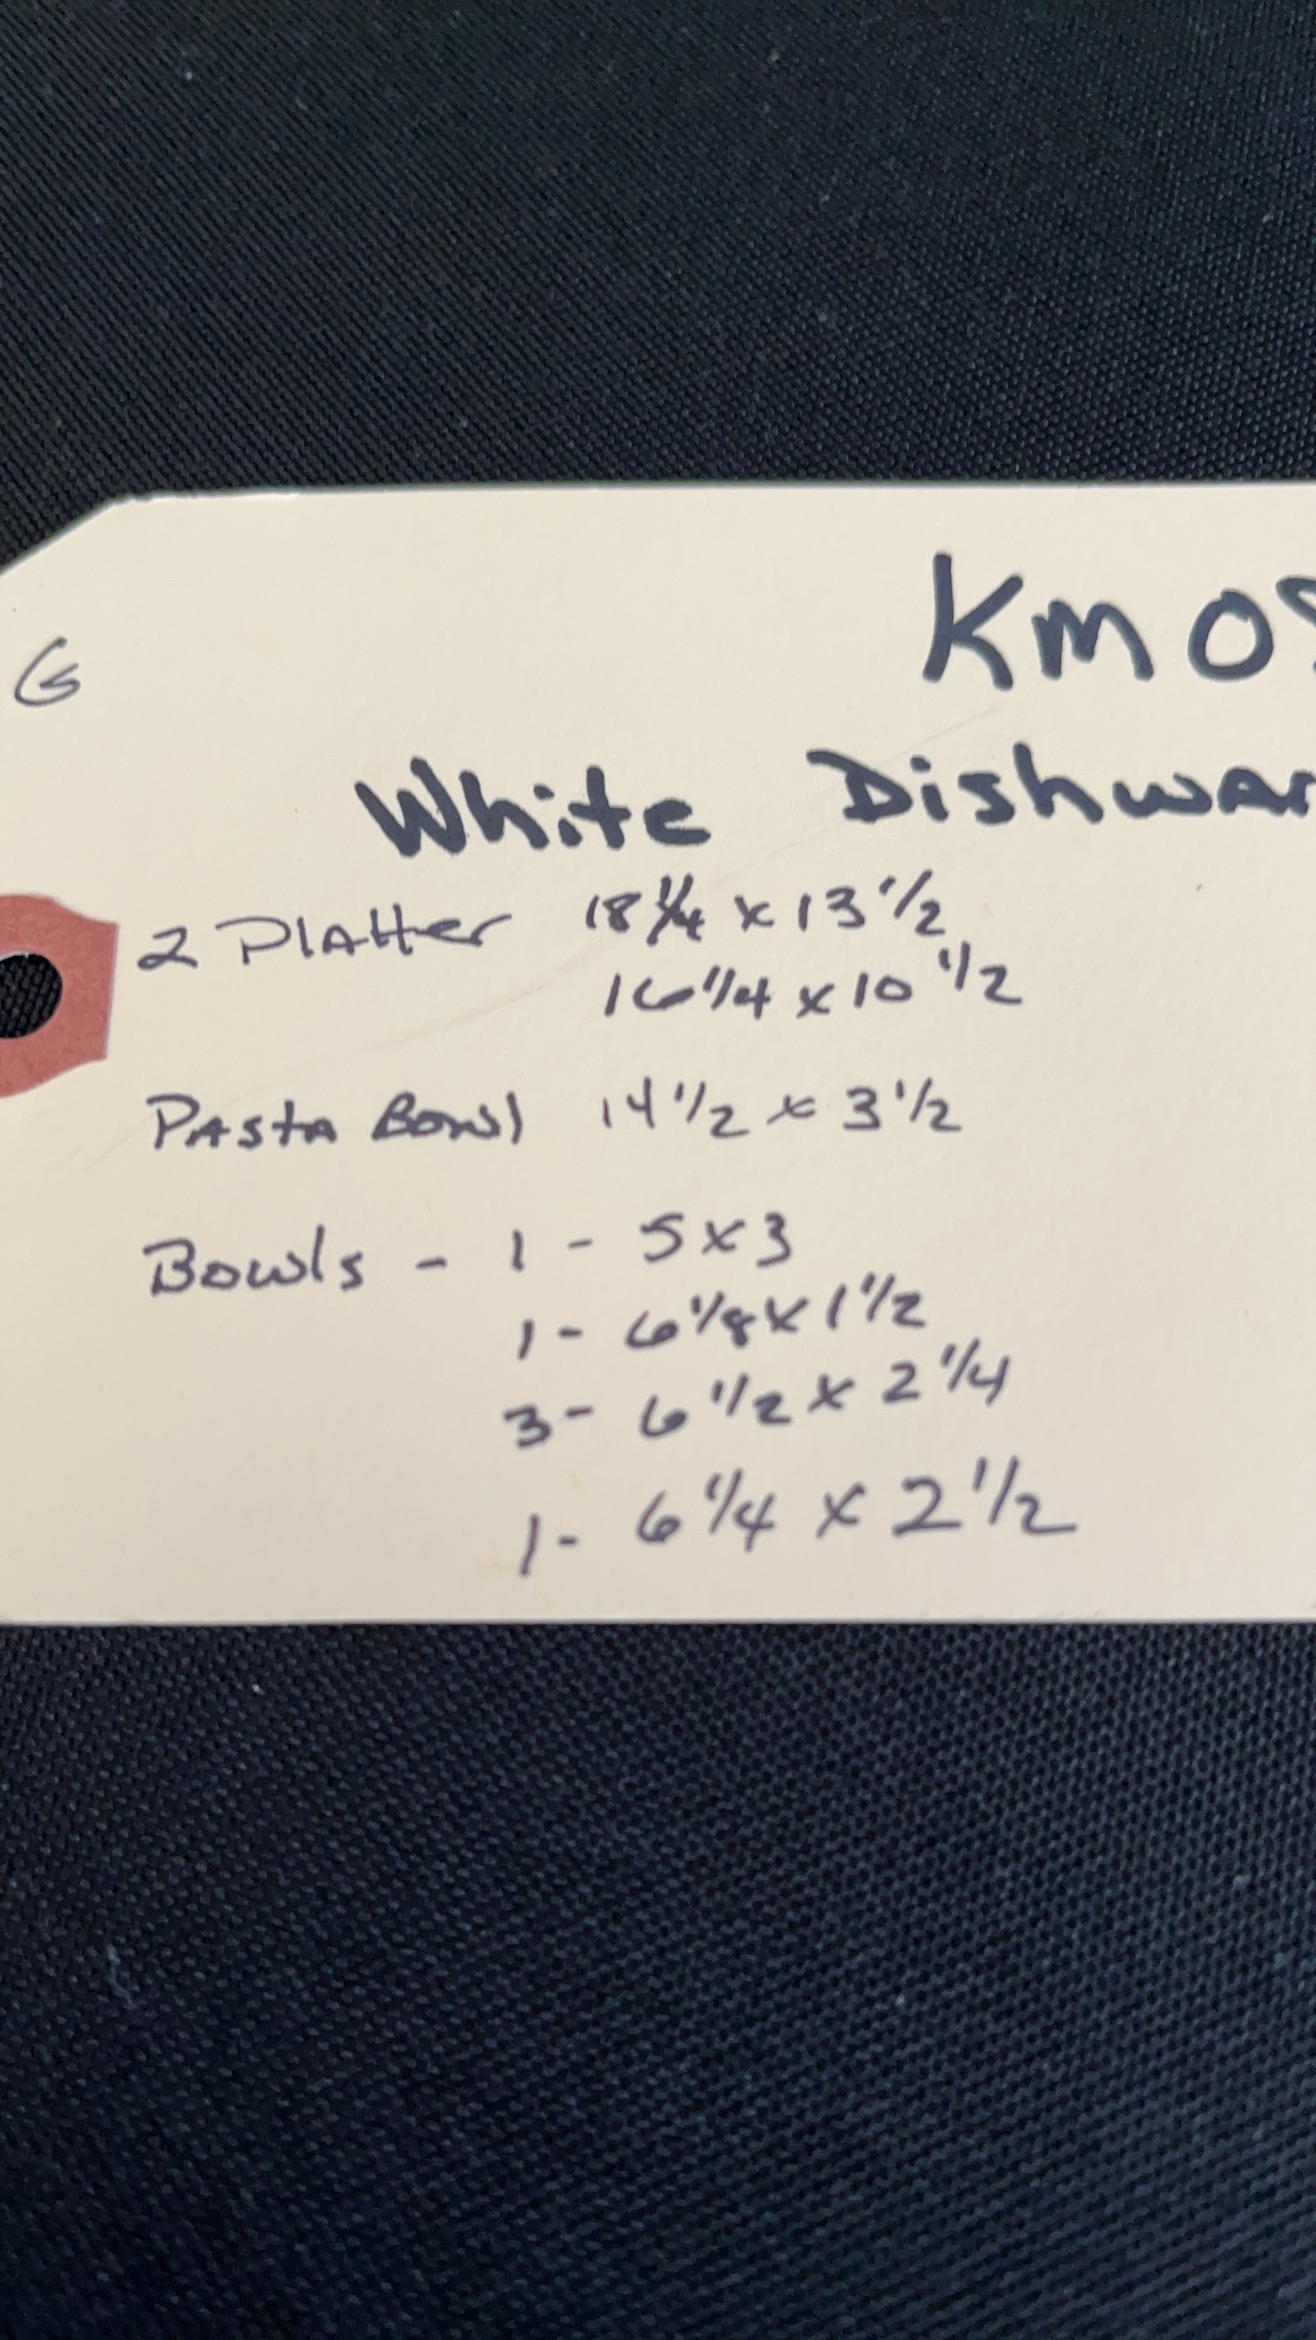 G
KMO
White Dishwar
2 Platter 18 1/4 x 13 1/2
16 1/4 x 10 1/2
Pasta Bowl 14 1/2 x 3 1/2
Bowls - 1 - 5 x 3
1 - 6 1/8 x 1 1/2
3 - 6 1/2 x 2 1/4
1 - 6 1/4 x 2 1/2